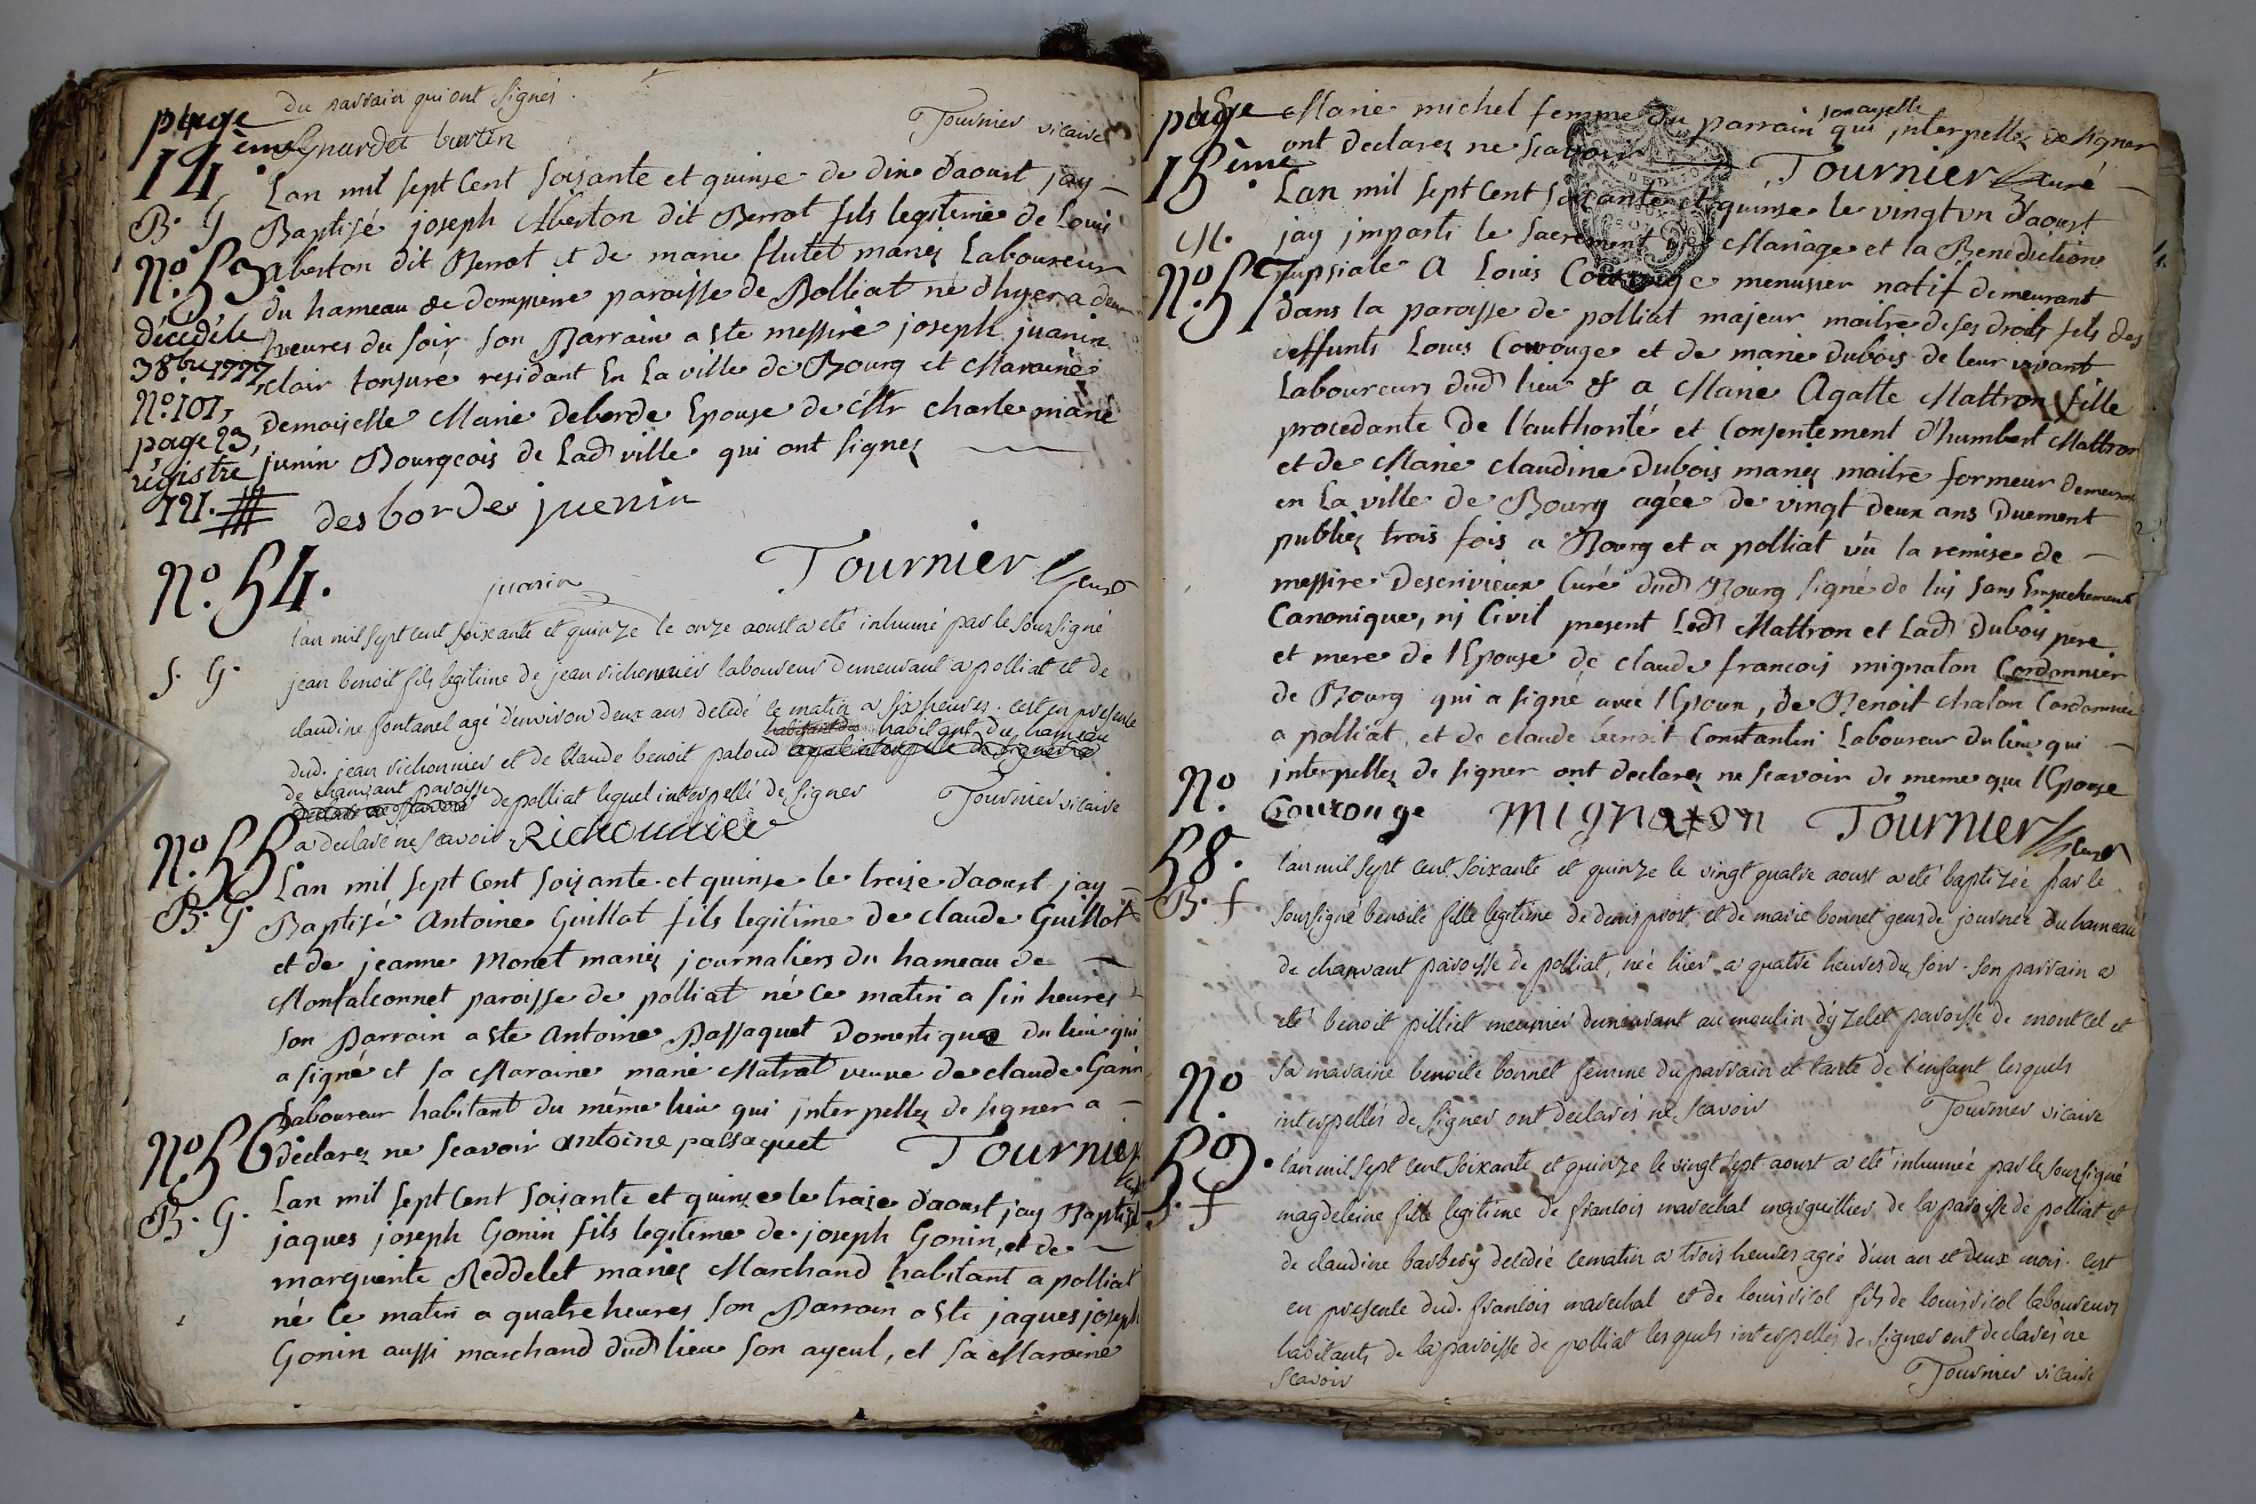 du parrain qui ont signés
page Tournier vicaire
14ème
Lan mil sept Cent Soisante et quinse de dix d'aoust jay
B. G. Baptisé joseph Alberton dit Berrot fils legitime de Louis
N.o 53. alberton dit Berrot et de marie flutet mariez Laboureur
du hameau de dompierre paroisse de Polliat né d'hyer a deux
décédé le heures du soir son Parrain a ete messire joseph juanin
3 8bre 1777 clair tonsuré residant En La ville de Bourg et Maraine
N.o 101, demoiselle Marie deborde Epouse de Mr charle marie
page 23, junin Bourgeois de Lad ville qui ont signez
régistre
121. desbordes juenin
N.o 54. Tournier Curé
juanin
l'an mil sept cent soixante et quinze le onze aoust a eté inhumé par le soussigné
S. G. jean benoit fils legitime de jean richonnier laboureur demeurant a polliat et de
claudine fontanel agé d'environ deux ans decedé le matin a six heures. c'est en presence
habitant du hameau
dud. jean richonnier et de Claude benoit paloud
de chanvant paroisse
de polliat lequel interpellé de signer Tournier vicaire
N.o 55 a declaré ne scavoir Richonnier
Lan mil sept Cent soisante et quinse le treize d'aoust jay
B. G. Baptisé Antoine Guillot fils legitime de claude Guillot
et de jeanne Monet mariez journaliers du hameau de
Montalconnet paroisse de polliat né ce matin a six heures
son Parrain a ete Antoine Passaquet Domestique du lieu qui
a signé et sa Maraine marie Matrat veuve de claude Ganin
Laboureur habitant du même lieu qui interpellez de signer a
N.o 56 declarez ne scavoir antoine passaquet Tournier
Lan mil sept Cent soisante et quinze le traize d'aoust jay Baptisé
B. G. jaques joseph Gonin fils legitime de joseph Gonin, et de
marguerite Reddelet mariez Marchand habitant a polliat
né le matin a quatre heures son Parrain a ete jaques joseph
Gonin aussi marchand dud lieu son ayeul, et sa Maraine
page Marie michel femme du parrain son ayelle qui interpellez de signer
15ème ont declarez ne scavoir Tournier Curé
Lan mil sept Cent soisante et quinse le vingt un d'aoust
M. jay imparti le sacrement de Mariage et la Benediction
N.o 57 nupsiale a Louis Courouge menusier natif demeurant
dans la paroisse de polliat majeur maitre de ses droits fils des
deffunts Louis Courouge et de marie dubois de leur vivant
Laboureurs dud lieu & a Marie Agatte Mattron fille
procedante de l'authorité et Consentement d'humbert Mattron
et de Marie claudine dubois mariez maitre formeur demeurant
en La ville de Bourg agée de vingt deux ans duement
publiez trois fois a Bourg et a polliat vû la remise de
messire descrivieux Curé dud Bourg signé de luy sans Empechement
Canonique, ny Civil present Led Mattron et Lad Dubois pere
et mere de l'Epouse de claude francois mignaton Cordonnier
de Bourg qui a signé avec l'Epoux, de Benoit chalon Cordonnier
a polliat, et de claude benoit Constantin Laboureur du lieu qui
N.o interpellez de signer ont declarez ne scavoir de meme que l'Epouse
Courouge mignaton Tournier Curé
58. l'an mil sept cent soixante et quinze le vingt quatre aoust a eté baptizée par le
B. f. soussigné benoite fille legitime de denis prost et de marie bonnet gens de journée du hameau
de chanvant paroisse de polliat, née hier a quatre heures du soir. son parrain a
eté benoit pilliet meunier demeurant au moulin d'yzelet paroisse de montcel et
N.o sa maraine benoite bonnet femme du parrain et tante de l'enfant lesquels
interpellés de signer ont declarés ne scavoir Tournier vicaire
59. l'an mil sept cent soixante et quinze le vingt sept aoust a eté inhumée par le soussigné
S. f magdeleine fille legitime de francois marechal marguillier de la paroisse de polliat et
de claudine barbery decedée ce matin a trois heures agée d'un an et deux mois. c'est
en presence dud. francois marechal et de louis vicol fils de louis vicol laboureurs
habitants de la paroisse de polliat lesquels interpellez de signer ont declarés ne
scavoir Tournier vicaire